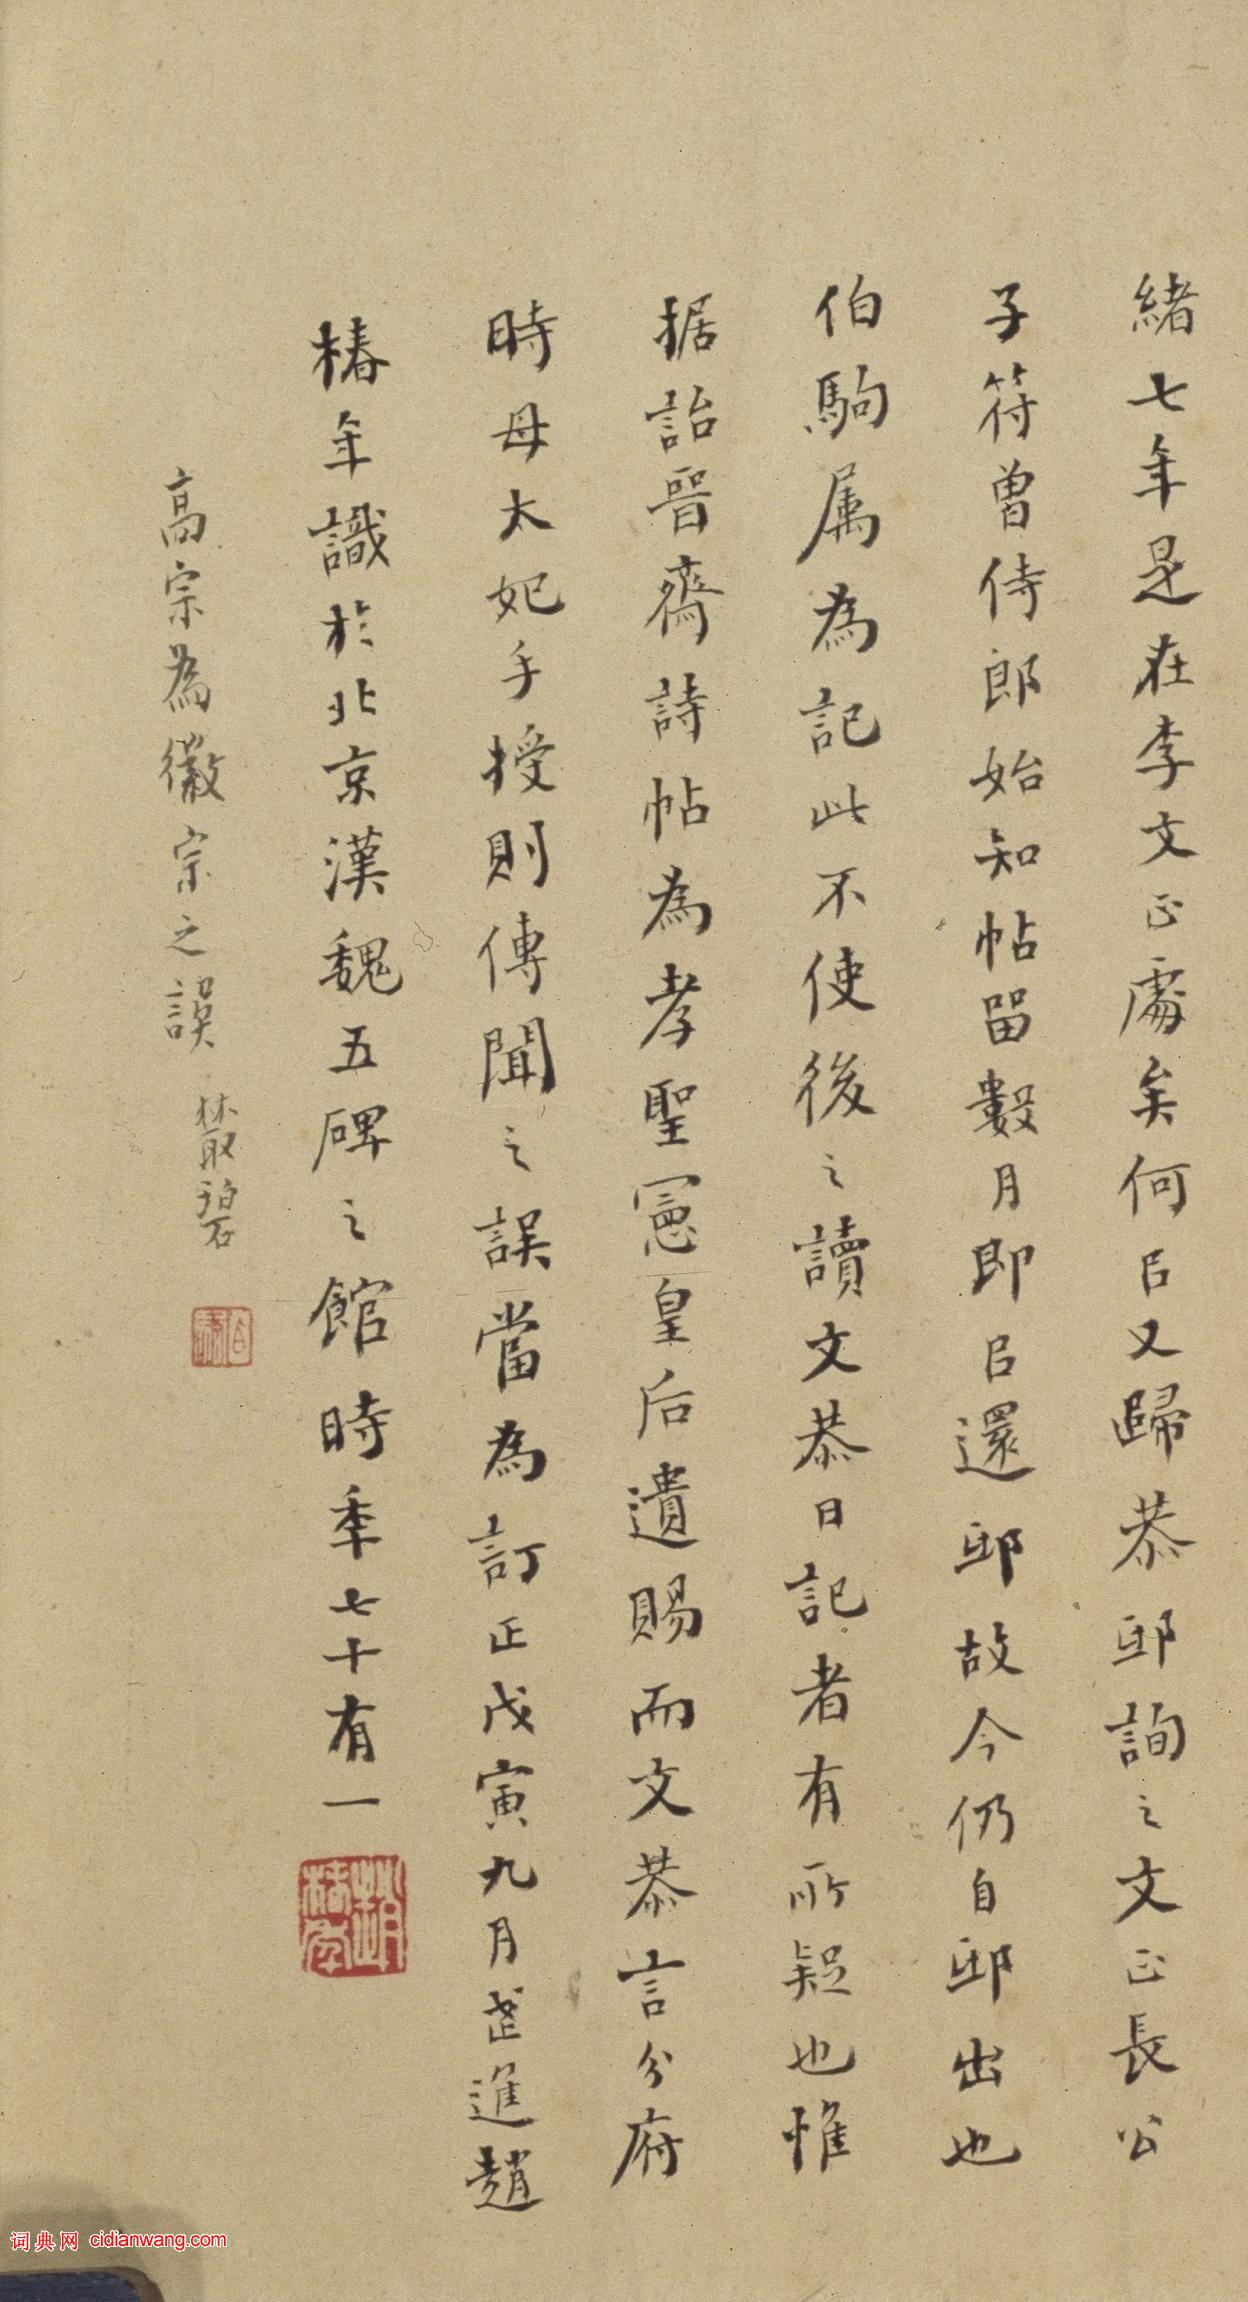 緒七年是在李文正處矣何㠯又歸恭邸詢之文正長公
子符曾侍郎始知帖留數月即㠯還邸故今仍自邸出也
伯駒属為記此不使後之讀文恭日記者有所疑也惟
据詒晉齋詩帖為孝聖憲皇后遺賜而文恭言分府
時母太妃手授則傳聞之誤當為訂正戊寅九月武進趙
椿年識於北京漢魏五碑之館時年七十有一
趙椿年
高宗為徽宗之誤 叢碧
詞典网 cidianwang.com